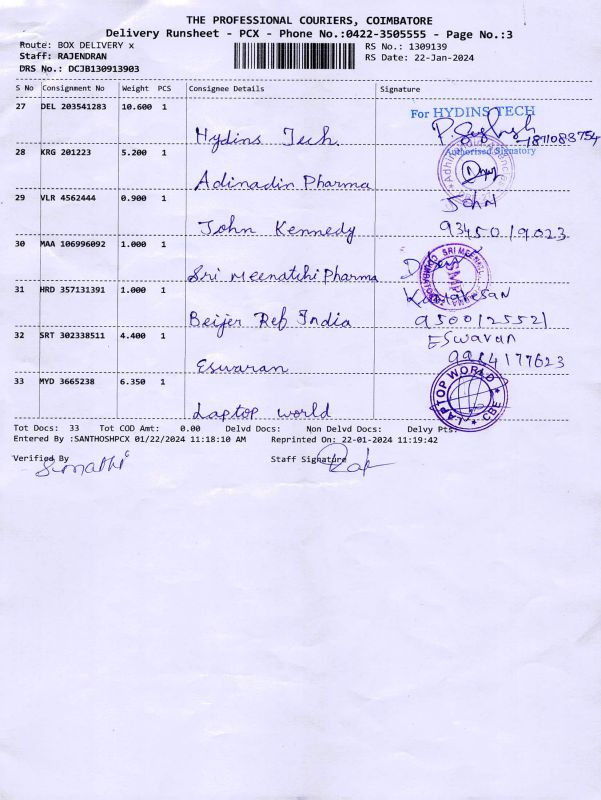 THE PROFESSIONAL COURIERS, COIMBATORE
Delivery Runsheet - PCX - Phone No.:0422-3505555 - Page No.:3
Route: BOX DELIVERY x
RS No.: 1309139
Staff: RAJENDRAN
RS Date: 22-Jan-2024
DRS No.: DCJB130913903
S No Consignment No Weight PCS Consignee Details Signature
27 DEL 203541283 10.600 1
For HYDINS TECH
Hydins Tech.
Authorised Signatory
28 KRG 201223 5.200 1
Adinadin Pharma
29 VLR 4562444 0.900 1
John
John Kennedy 9345019023
30 MAA 106996092 1.000 1
Sri meenatchi Pharma
31 HRD 357131391 1.000 1
Beijer Ref India 9500125521
32 SRT 302338511 4.400 1
Eswaran
Eswaran 9984177623
33 MYD 3665238 6.350 1
LAPTOP WORLD CBE
Laptop world
Tot Docs: 33 Tot COD Amt: 0.00 Delvd Docs: Non Delvd Docs: Delvy Pts:
Entered By :SANTHOSHPCX 01/22/2024 11:18:10 AM Reprinted On: 22-01-2024 11:19:42
Verified By Staff Signature